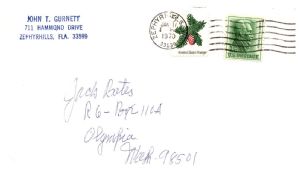 JOHN T. GURNETT
711 HAMMOND DRIVE
ZEPHYRHILLS, FLA. 33599
ZEPHYRHILLS
1970
Jack Oates
R6-Box 110A
Olympia
Wash-98501